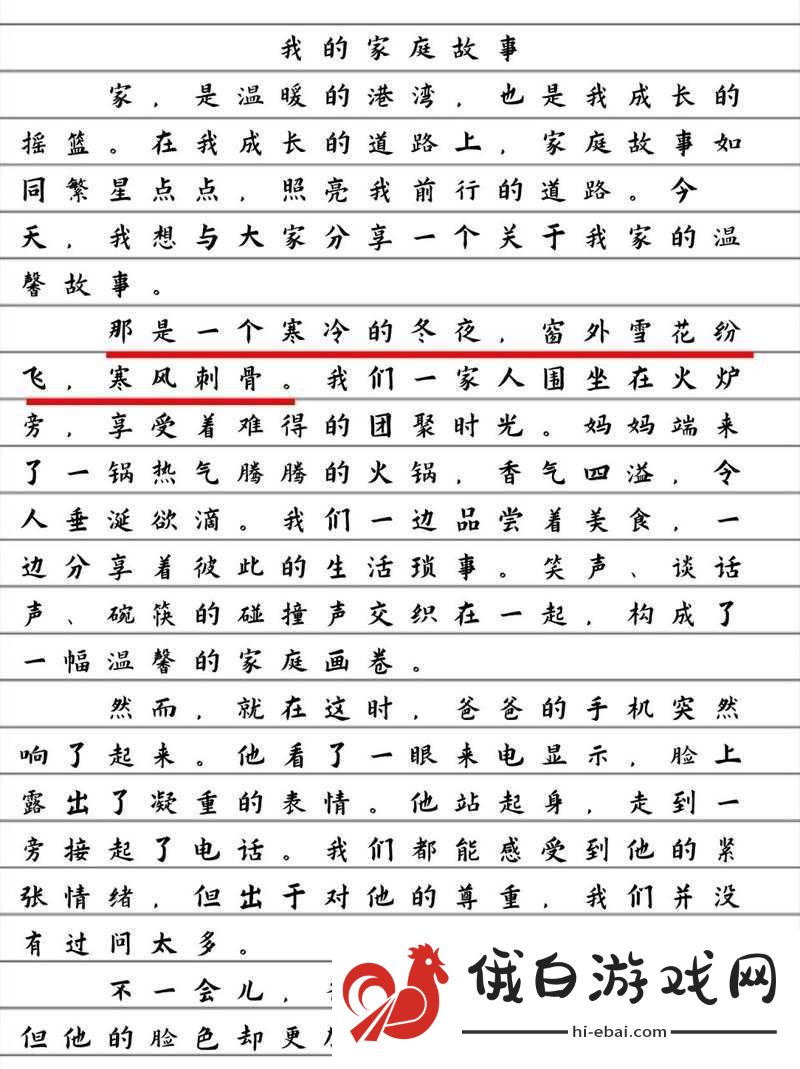 我的家庭故事
家，是温暖的港湾，也是我成长的
摇篮。在我成长的道路上，家庭故事如
同繁星点点，照亮我前行的道路。今
天，我想与大家分享一个关于我家的温
馨故事。
那是一个寒冷的冬夜，窗外雪花纷
飞，寒风刺骨。我们一家人围坐在火炉
旁，享受着难得的团聚时光。妈妈端来
了一锅热气腾腾的火锅，香气四溢，令
人垂涎欲滴。我们一边品尝着美食，一
边分享着彼此的生活琐事。笑声、谈话
声、碗筷的碰撞声交织在一起，构成了
一幅温馨的家庭画卷。
然而，就在这时，爸爸的手机突然
响了起来。他看了一眼来电显示，脸上
露出了凝重的表情。他站起身，走到一
旁接起了电话。我们都能感受到他的紧
张情绪，但出于对他的尊重，我们并没
有过问太多。
不一会儿，
但他的脸色却更
俄白游戏网
hi-ebai.com